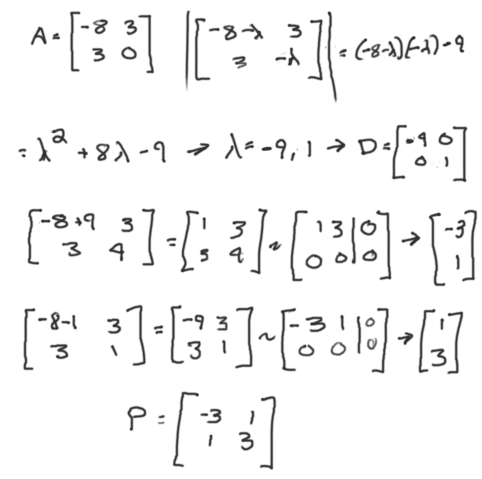 A = [-8 3; 3 0] |[-8-λ 3; 3 -λ]| = (-8-λ)(-λ)-9
= λ² + 8λ - 9 → λ = -9, 1 → D = [-9 0; 0 1]
[-8+9 3; 3 4] = [1 3; 3 4] ~ [1 3 | 0; 0 0 | 0] → [-3; 1]
[-8-1 3; 3 1] = [-9 3; 3 1] ~ [-3 1 | 0; 0 0 | 0] → [1; 3]
P = [-3 1; 1 3]